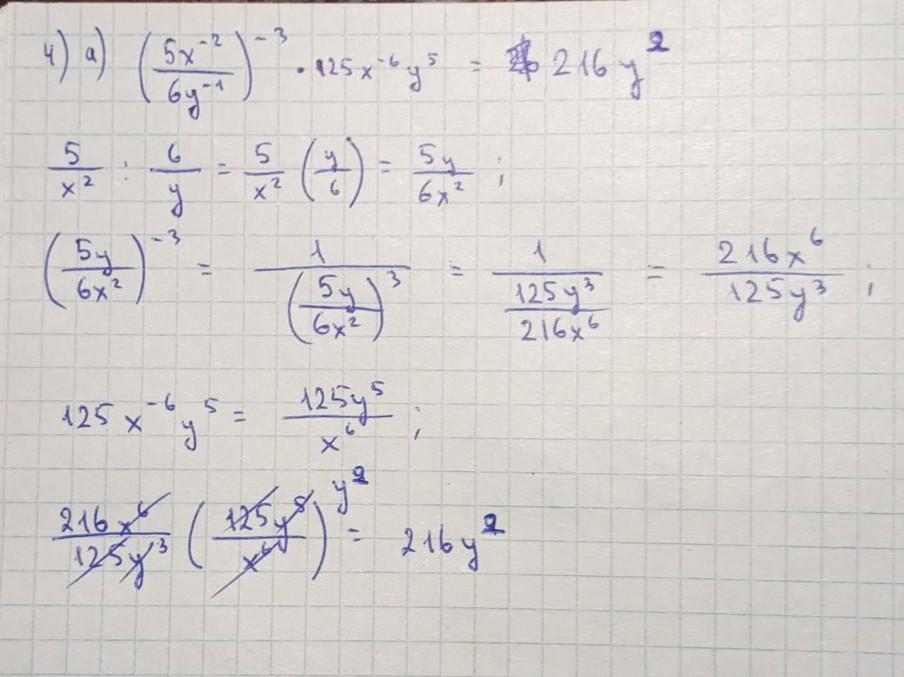 4) a) (5x⁻²/6y⁻¹)⁻³ · 125x⁻⁶y⁵ = 216y²
5/x² : 6/y = 5/x² (y/6) = 5y/6x² ;
(5y/6x²)⁻³ = 1/(5y/6x²)³ = 1/(125y³/216x⁶) = 216x⁶/125y³ ;
125x⁻⁶y⁵ = 125y⁵/x⁶ ;
216x⁶/125y³ (125y⁵/x⁶) y² = 216y²